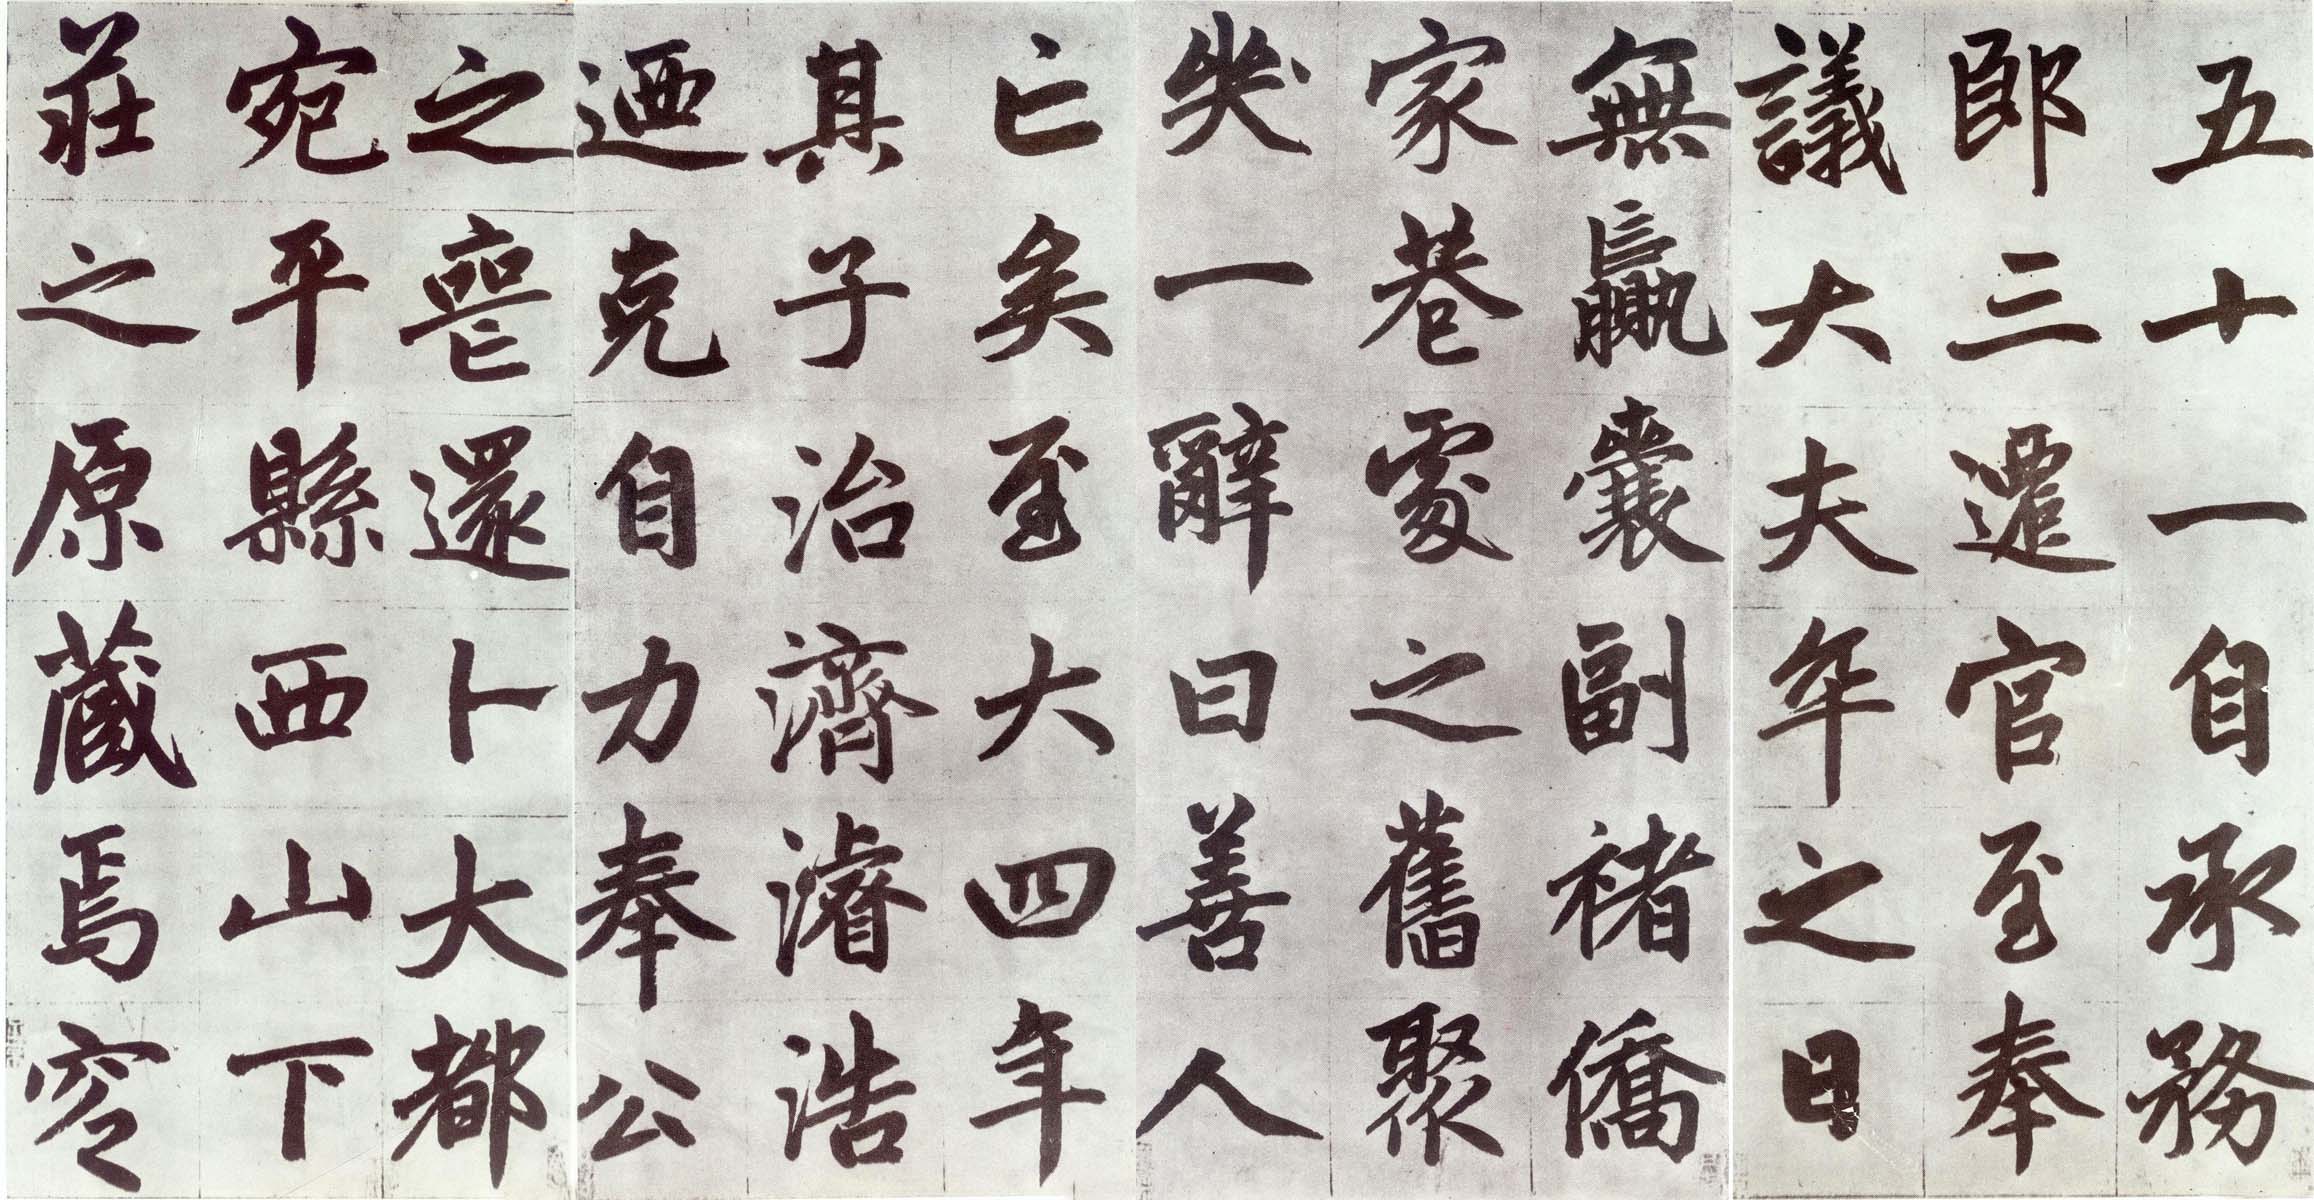 五十一自承務
郎三遷官至奉
議大夫卒之日
無羸囊副褚僑
家巷處之舊聚
哭一辭曰善人
亡矣至大四年
其子治濟濬浩
迺克自力奉公
之喪還卜大都
宛平縣西山下
莊之原藏焉窆